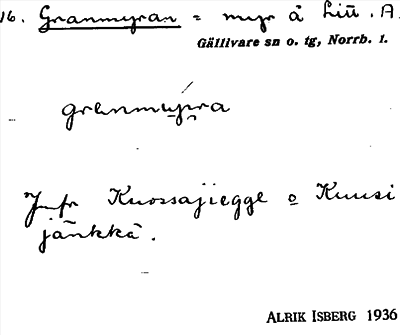 16. Granmyran = myr å Lill. A.
Gällivare sn o. tg, Norrb. l.
grenmyra
Jnfr Kuossajiegge o Kuusi
jänkkä.
ALRIK ISBERG 1936